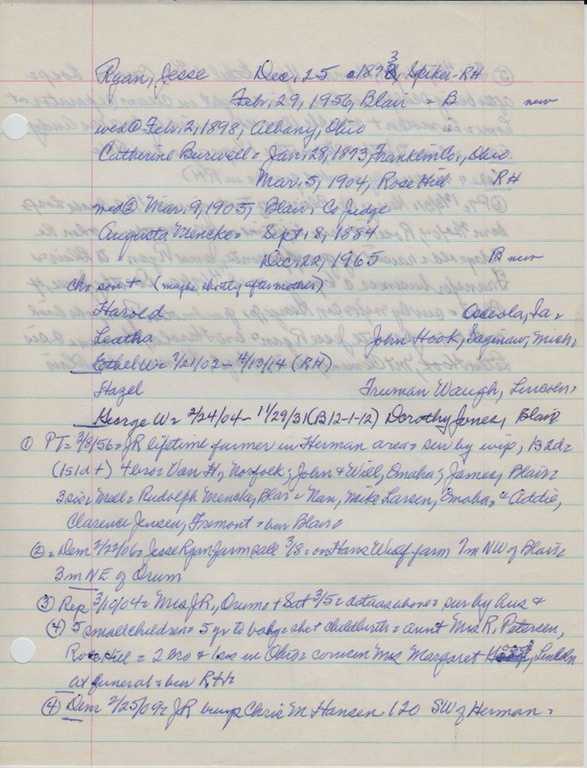 Ryan, Jesse Dec. 25 1873 Spiker - RH
Feb. 29, 1956, Blair = B new
wed① Feb. 2, 1898, Albany, Ohio
Catherine Burwell = Jan. 28, 1873, Franklin Co., Ohio
Mar. 5, 1904, Rose Hill RH
wed② Mar. 9, 1905, Blair, Co Judge
Augusta Mencke = Sept. 8, 1884
Dec. 22, 1965 B new
ch = son + (maybe shortly after mother)
Harold Osceola, Ia =
Leatha John Hook, Saginaw, Mich =
Ethel W = 2/21/02 - 4/13/14 (RH)
Hazel Truman Waugh, Lincoln =
George W = 2/24/04 - 11/29/31 (B12-1-12) Dorothy Jones, Blair
① PT = 3/8/56 = JR lifetime farmer in Herman area = sur by wife, 2d =
(1s1d+) 4 bro = Van H, Norfolk; John & Will, Omaha; James, Blair =
3 sis = Mell = Rudolph Mencke, Blair = Nan, Mike Larsen, Omaha, & Addie,
Clarence Jensen, Fremont = bur Blair =
② = Dem 2/22/06 = Jesse Ryan farm sale 3/8 = on Hans Wulf farm 7m NW of Blair =
3m NE of Orum
③ Rep 3/10/04 = Mrs J R., Orum + Sat 3/5 = data as above = sur by hus &
(4) 5 small children = 5 yr to baby = she + childbirth = aunt Mrs R. Petersen,
Rose Hill = 2 bro & 1 sis in Ohio = cousin Mrs Margaret Lincoln
at funeral = bur RH =
④ Dem 2/25/09 = JR buys Chris M Hansen 120 SW of Herman =